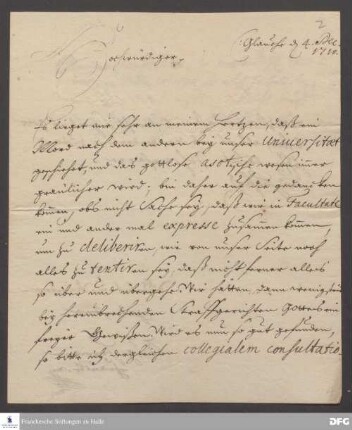 2
Glaucha d 4. Dec.
1710.
Hochwürdiger,
Es lieget mir sehr an meinem Hertzen, daß ein
Mord nach dem andern bey unser Universitaet
geschiehet, und das gottlose asotische wesen immer
greulicher wird; bin daher auf die gedancken
kommen, obs nicht Sache sey, daß wir in Facultate
ein und ander mal expresse zusammen kommen,
um zu deliberiren, wie von unser Seite noch
alles zu tentiren sey, daß nicht ferner alles
so über und über gehe. Wir hätten dann wenigstens
bey hereinbrechenden Straffgerichten Gottes ein
freyes Gewissen. Wird es nun so gut gefunden,
so bitte ich dergleichen collegialem consultatio-
Franckesche Stiftungen zu Halle
DFG